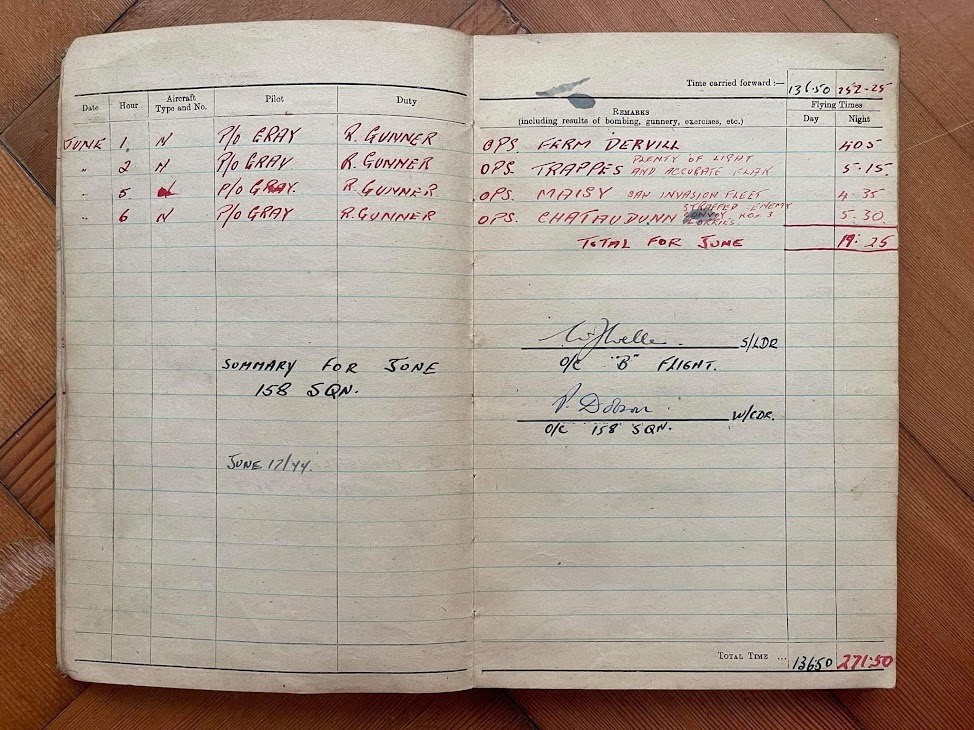 Time carried forward :— 136.50 252.25
Date Hour Aircraft Type and No. Pilot Duty REMARKS (including results of bombing, gunnery, exercises, etc.) Flying Times Day Night
JUNE 1. N P/O GRAY R. GUNNER OPS. FERM DERVILL 4.05
" 2 N P/O GRAY R. GUNNER OPS. TRAPPES PLENTY OF LIGHT AND ACCURATE FLAK 5.15
" 5 P/O GRAY. R. GUNNER OPS. MAISY SAW INVASION FLEET 4.35
" 6 N P/O GRAY R. GUNNER OPS. CHATAUDUNN STRAFFED ENEMY CONVOY. LORRIES. 5.30
TOTAL FOR JUNE 19.25
S/LDR
O/C "B" FLIGHT.
SUMMARY FOR JUNE
158 SQN.
P. Dobson W/CDR.
O/C 158 SQN.
JUNE 17/44.
TOTAL TIME ... 136.50 271.50